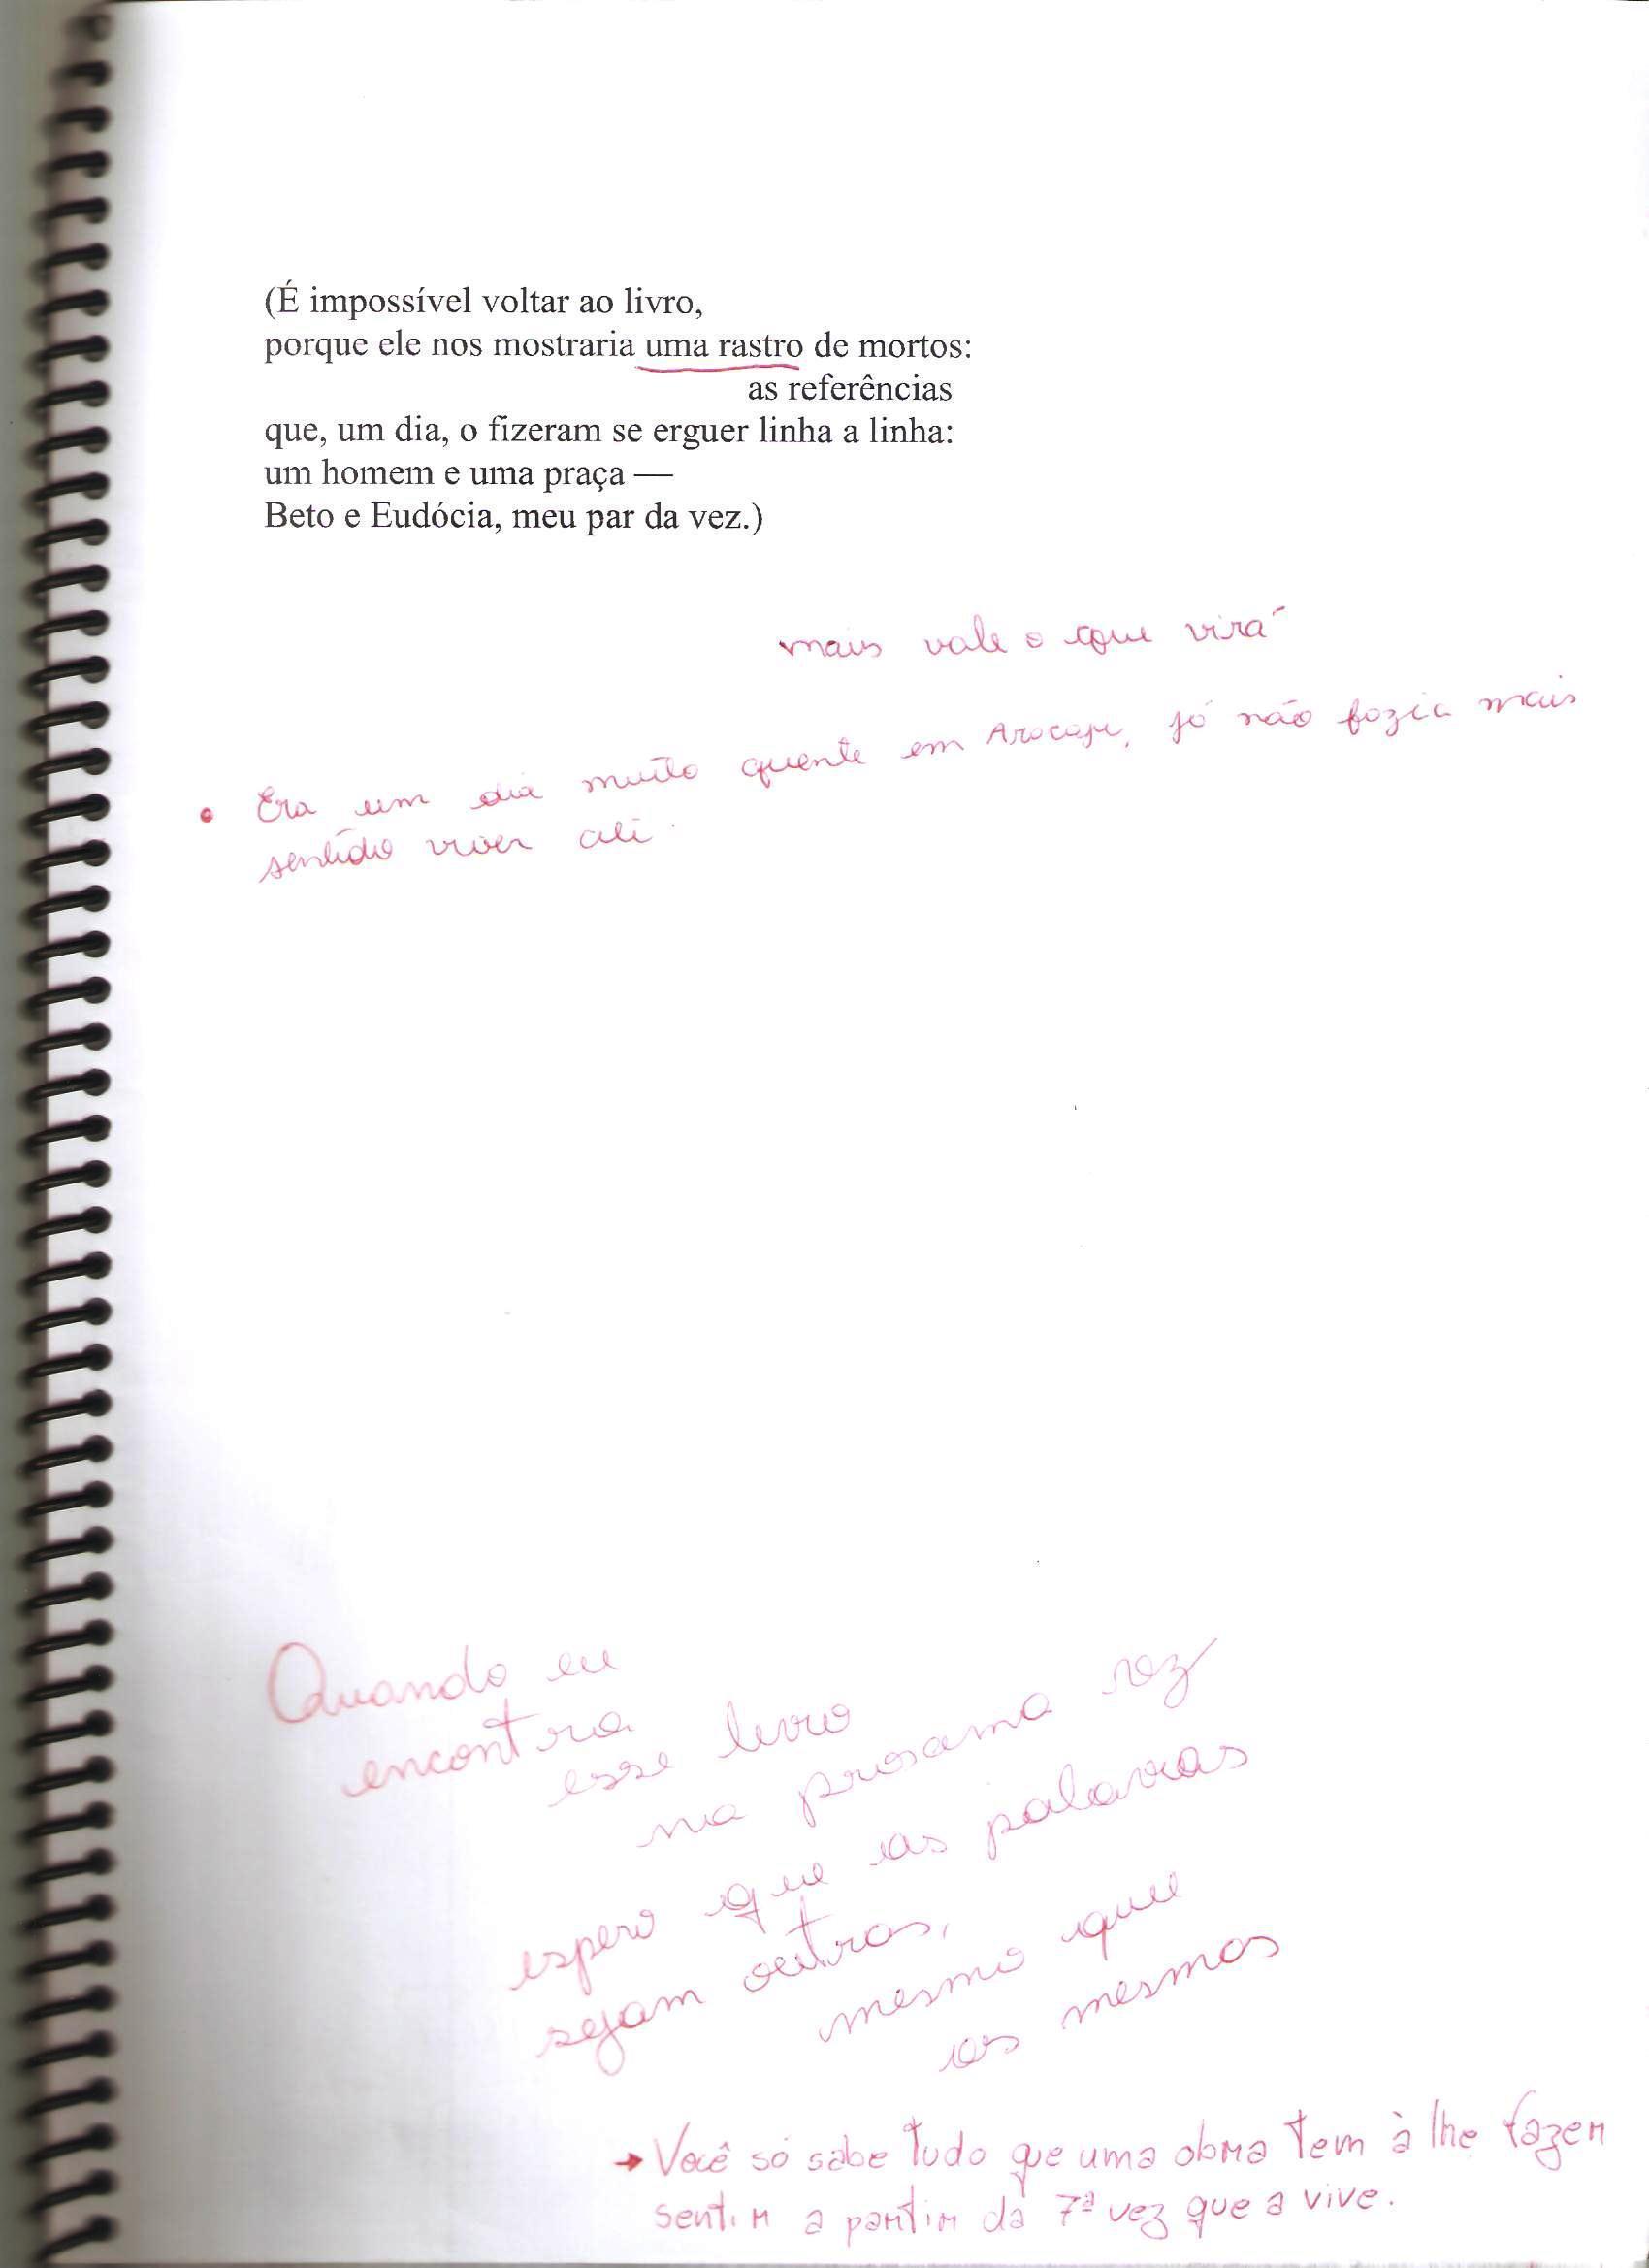 (É impossível voltar ao livro,
porque ele nos mostraria uma rastro de mortos:
as referências
que, um dia, o fizeram se erguer linha a linha:
um homem e uma praça —
Beto e Eudócia, meu par da vez.)
mais vale o que virá
• Era um dia muito quente em Aracaju, já não fazia mais
sentido viver ali.
Quando eu
encontra
esse livro
na prosama vez
espero que as palavras
sejam outras,
mesmo que
as mesmas
→ Você só sabe tudo que uma obra tem à lhe fazer
sentir a partir da 7ª vez que a vive.